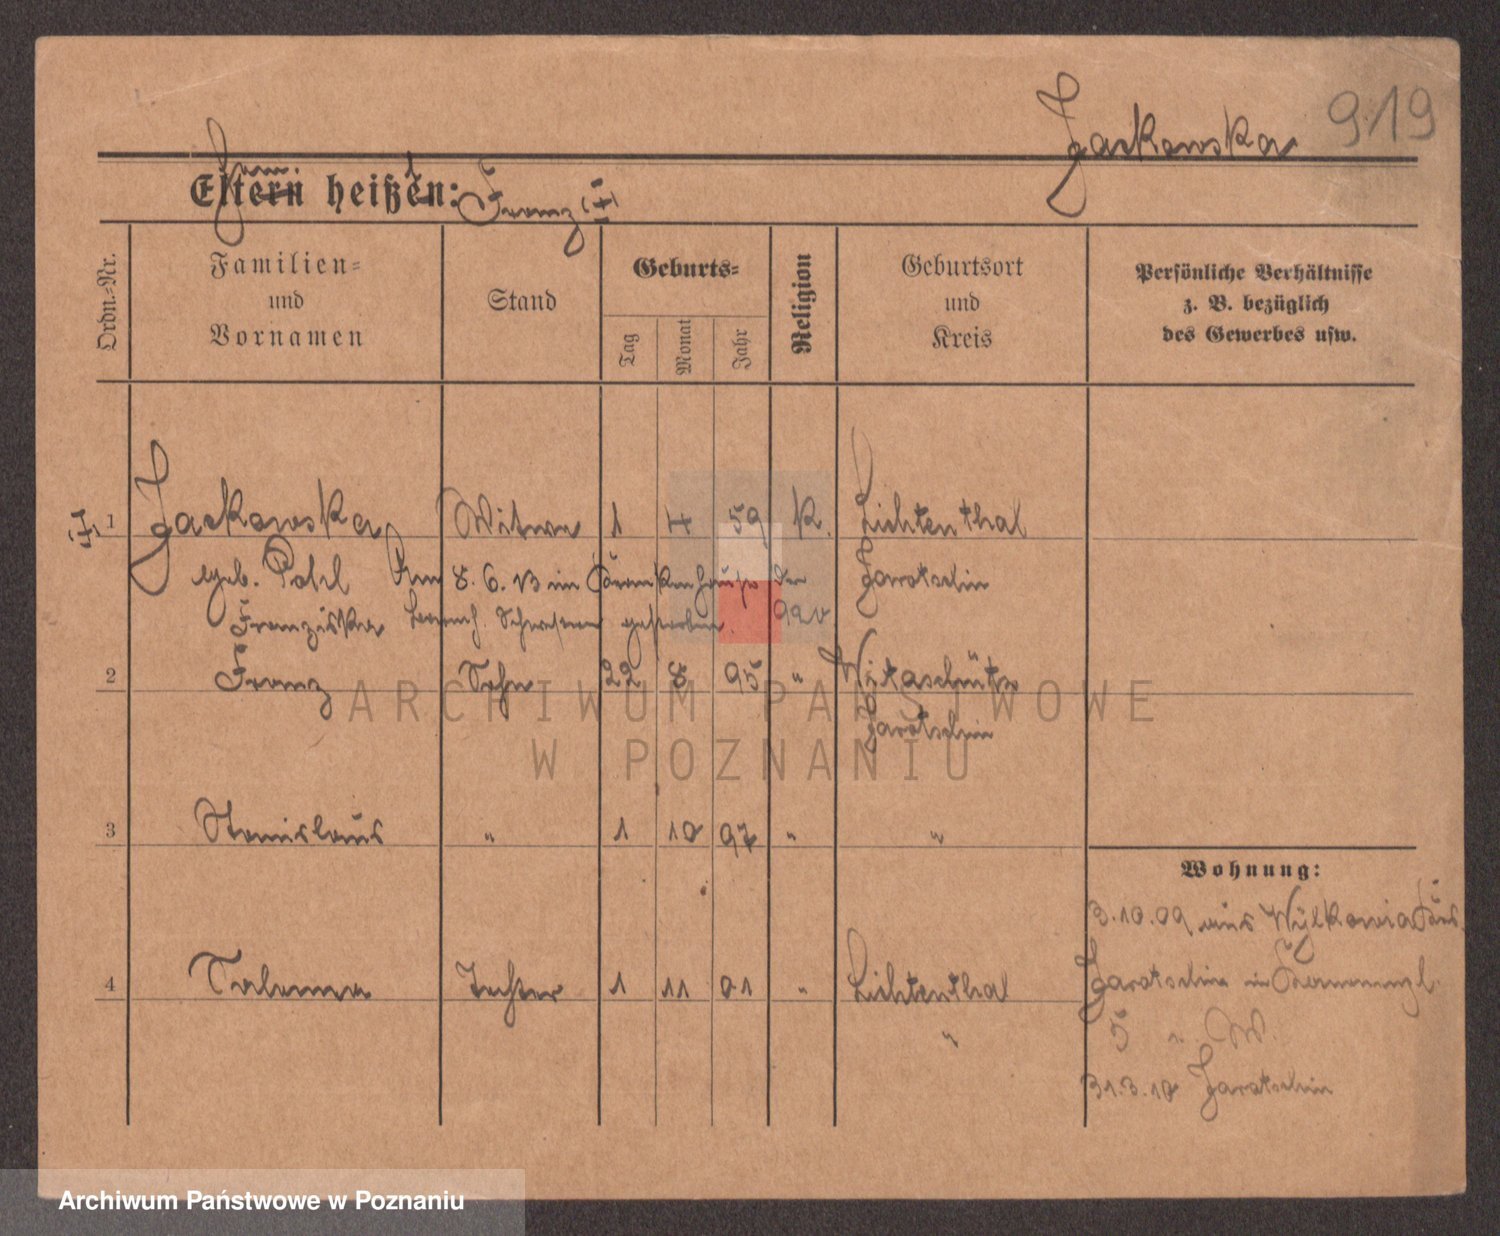 919
Jackowska
Eltern heißen: Franz (†)
Ordn.=Nr.
Familien=
und
Vornamen
Stand
Geburts=
Tag
Monat
Jahr
Religion
Geburtsort
und
Kreis
Persönliche Verhältnisse
z. B. bezüglich
des Gewerbes usw.
(†) 1 Jackowska Witwe 1 4 59 K. Lichtenthal
geb. Pohl Am 8. 6. 13 im Krankenhause der Jarotschin
Franziska barmh. Schwestern gestorben.
2 Franz Sohn 22 8 95 " Witaschütz
Jarotschin
ARCHIWUM PAŃSTWOWE
W POZNANIU
3 Stanislaus " 1 10 97 " "
Wohnung:
3.10.09 aus
4 Salomea Tochter 1 11 01 " Lichtenthal
"
Jarotschin in
5 " W.
31.3.10 Jarotschin
Archiwum Państwowe w Poznaniu